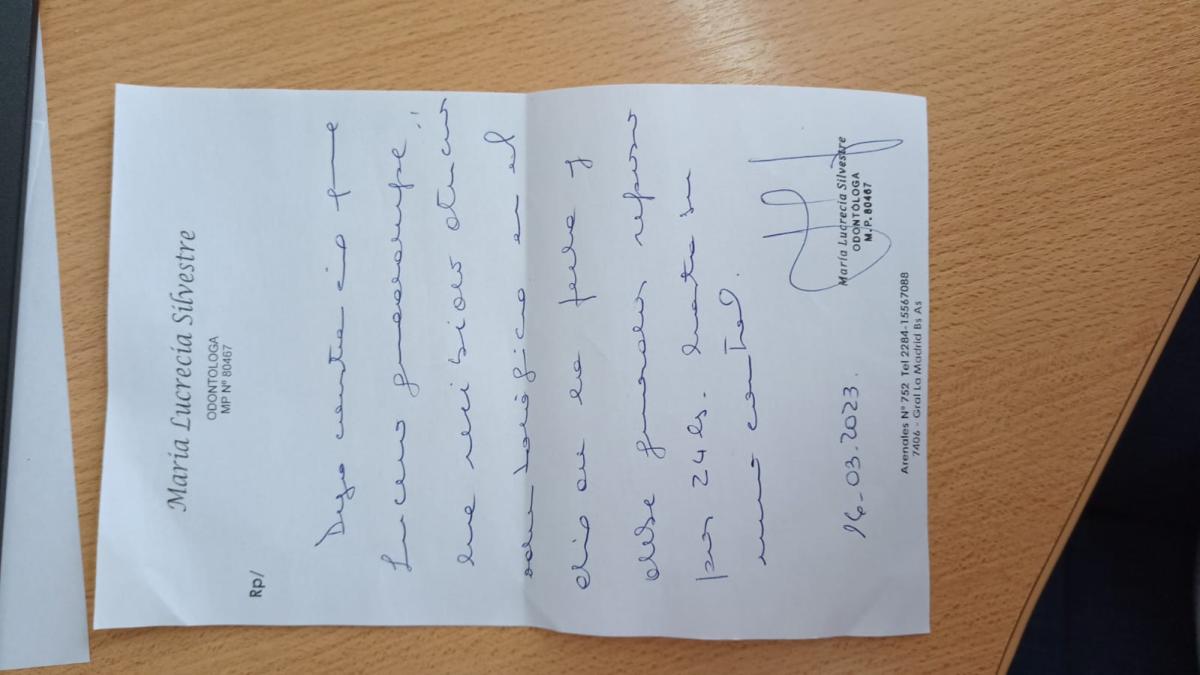 María Lucrecia Silvestre
ODONTOLOGA
MP Nº 80467
Rp/
Dejo constancia que
Lucero Guadalupe
ha recibido atención
odontológica en el
día de la fecha y
debe guardar reposo
por 24 hs. hasta su
nuevo control.
16-03-2023.
María Lucrecia Silvestre
ODONTÓLOGA
M.P. 80467
Arenales Nº 752 Tel 2284-15567088
7406 - Gral La Madrid Bs As